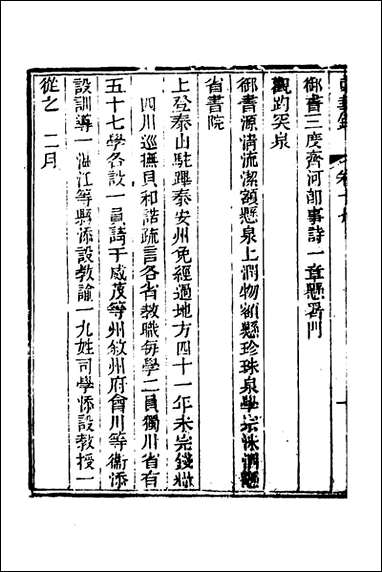 東華錄 卷十九
御書三度齊河卽事詩一章懸署門
觀趵突泉
御書源清流潔額懸泉上潤物額懸珍珠泉學宗洙泗懸
省書院
上登泰山駐蹕泰安州免經過地方四十一年未完錢糧
四川巡撫貝和諾疏言各省教職每學二員獨川省有
五十七學各設一員請于威茂等州敘州府會川等衞添
設訓導一溫江等縣添設教諭一九姓司學添設教授一
從之 二月